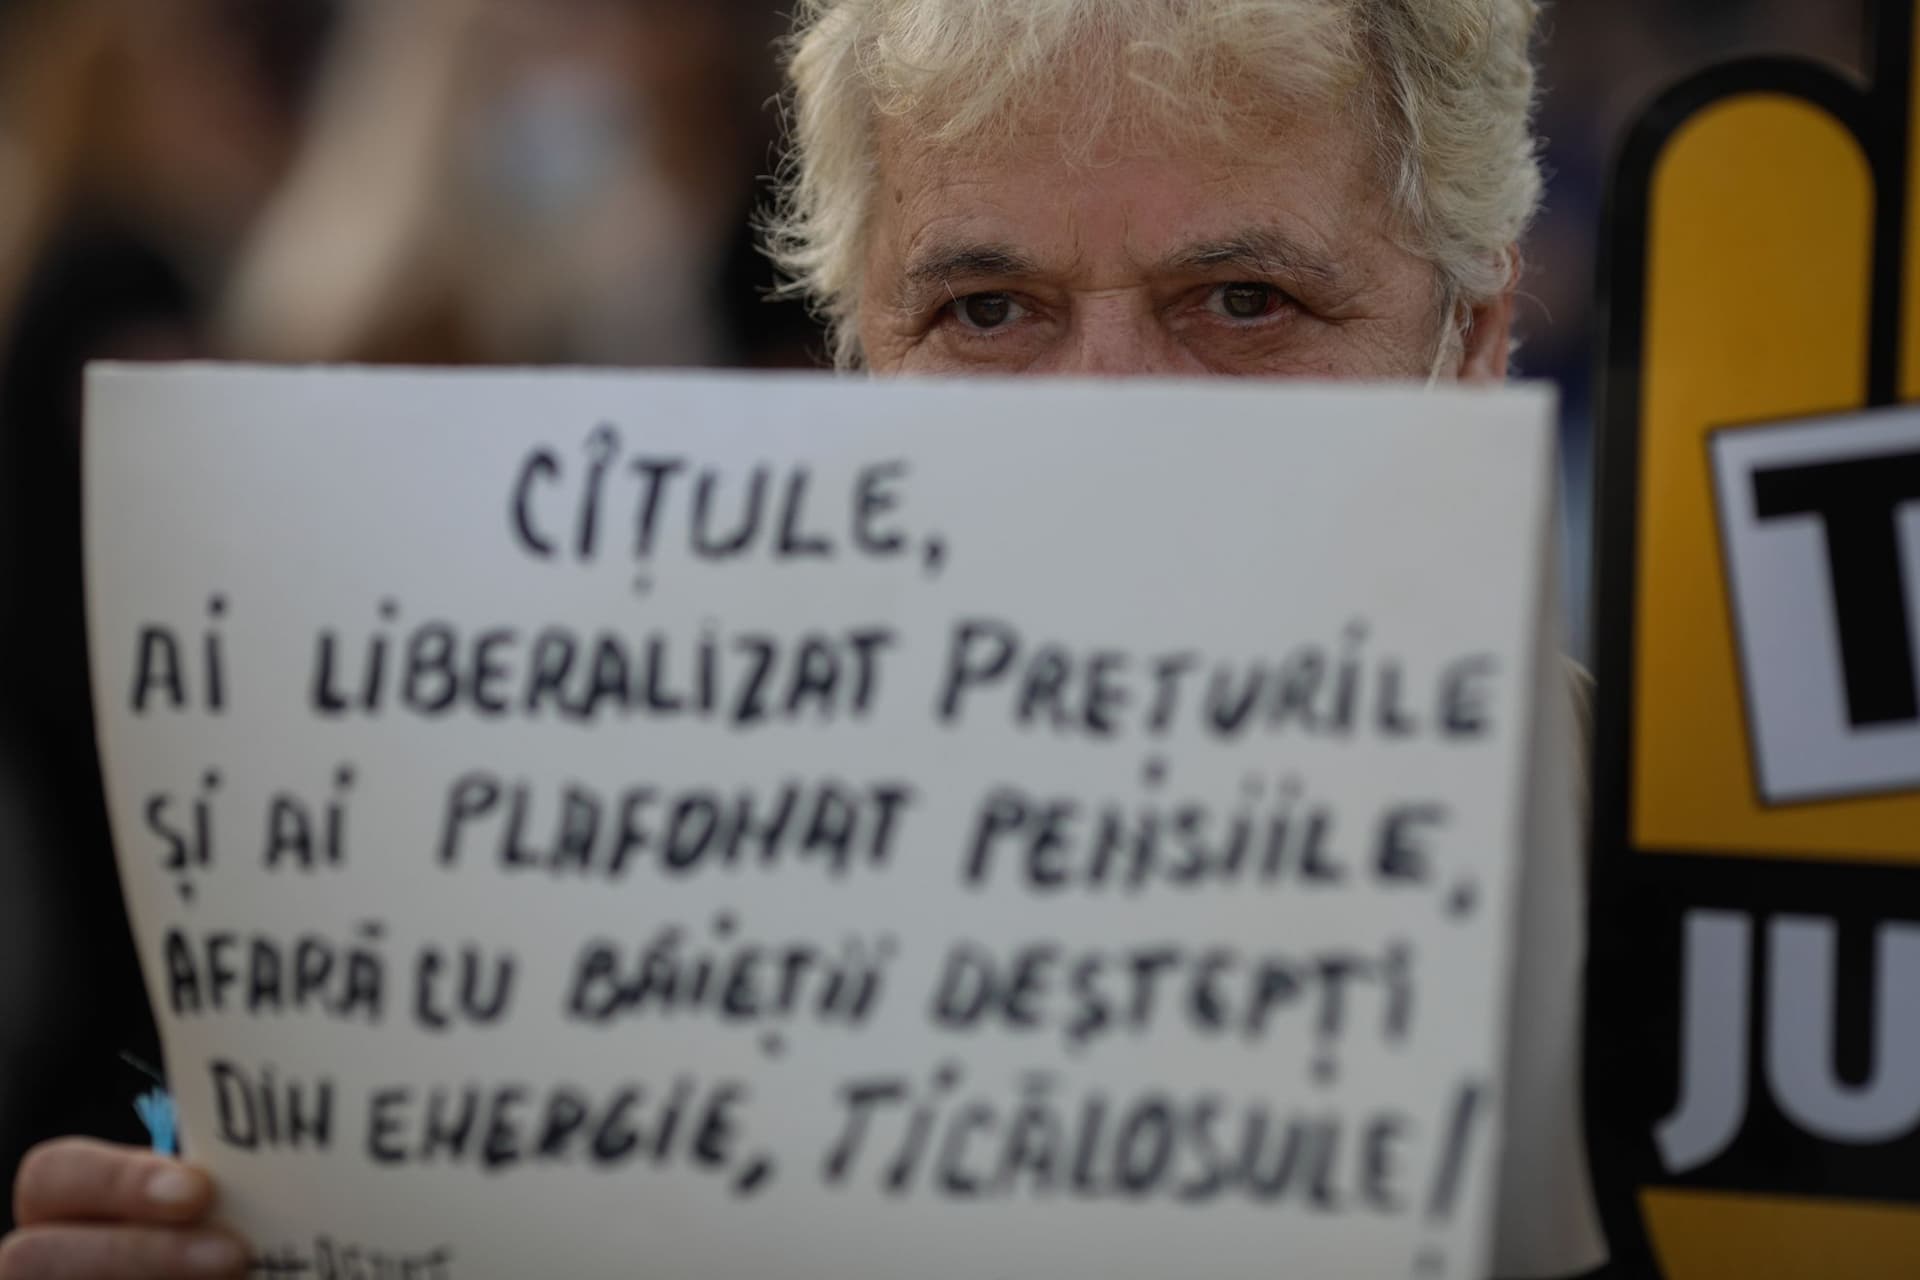 CÎȚULE,
AI LIBERALIZAT PREȚURILE
ȘI AI PLAFONAT PENSIILE,
AFARĂ CU BĂIEȚII DEȘTEPȚI
DIN ENERGIE, TICĂLOSULE!
T
JU